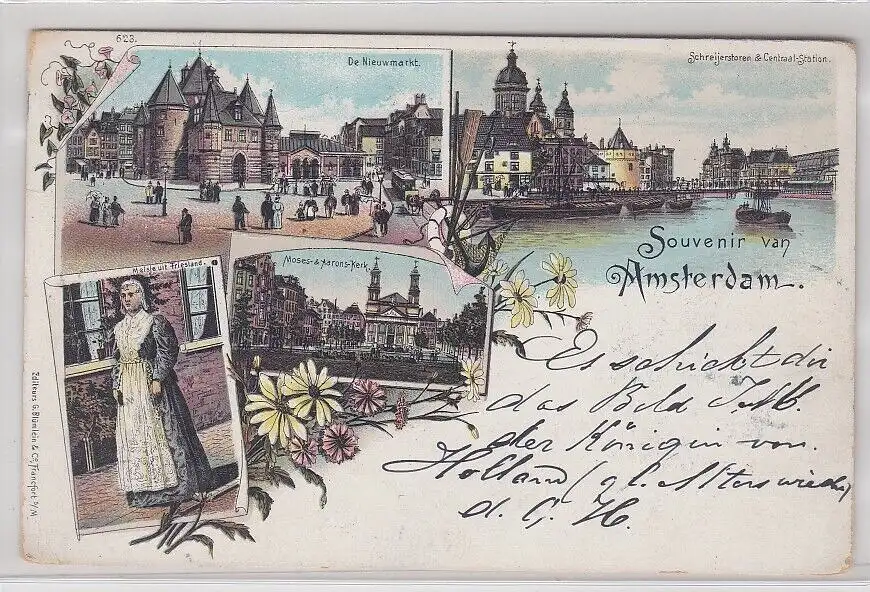 623.
De Nieuwmarkt.
Schreijerstoren & Centraal-Station.
Souvenir van
Amsterdam.
Meisje uit Friesland.
Moses- & Aarons-Kerk.
Editeurs G. Blümlein & Co., Francfort s/M
Es schickt dir
das Bild I. M.
der Königin von
Holland (gl. Alters wie du)
d. G. H.